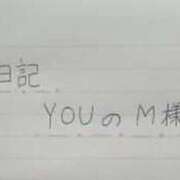 日記
YOUのM様